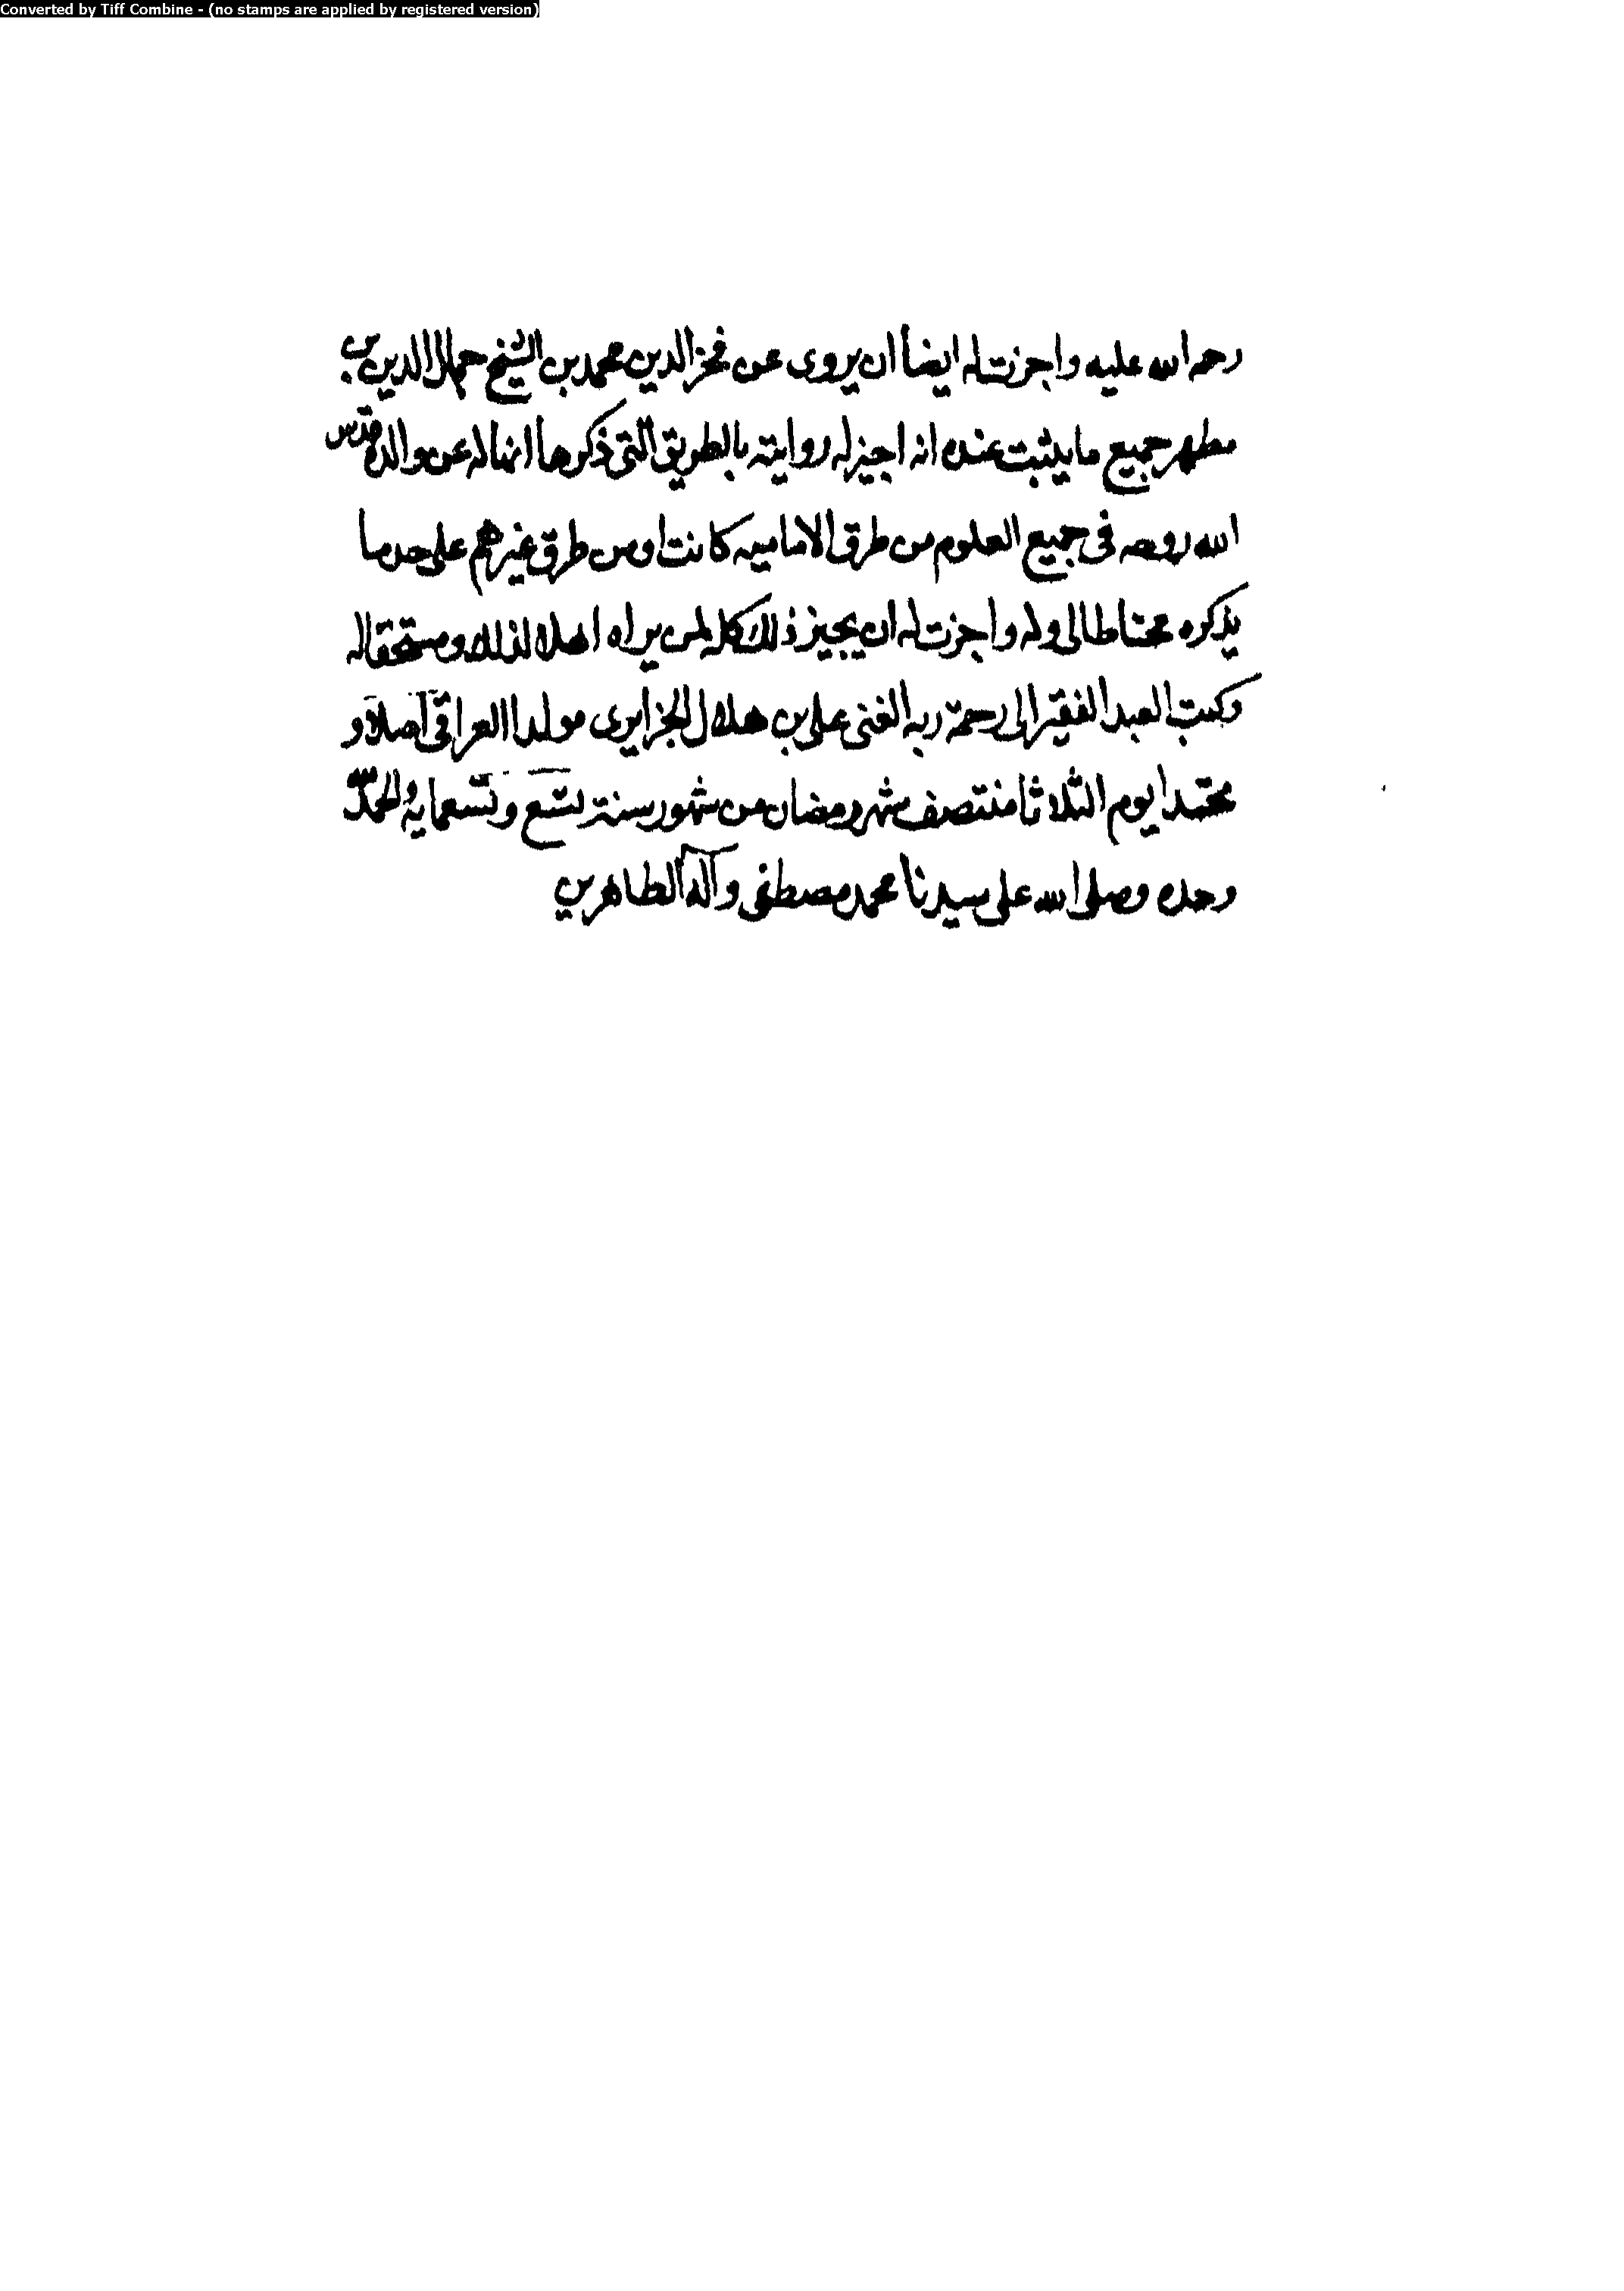 Converted by Tiff Combine - (no stamps are applied by registered version)
رحمه الله عليه واجزت له ايضا ان يروى عن فخر الدين محمد بن الشيخ جمال الدين بن
مطهر جميع ما يثبت عنده انه اجيز له روايته بالطريق التى ذكرها انها له عن والده قدس
الله روحه فى جميع العلوم من طرق الاماميه كانت او من طرق غيرهم على حد ما
يذكره محتاطا لى وله واجزت له ان يجيز ذلك كله لمن يراه اهلا لذلك ومستحقا له
وكتب العبد الفقير الى رحمة ربه الغنى على بن هلال الجزايرى مولدا العراقى اصلا و
محتدا يوم الثلاثا منتصف شهر رمضان من شهور سنة تسع وتسعماية والحمد لله
وحده وصلى الله على سيدنا محمد مصطفى وآله الطاهرين